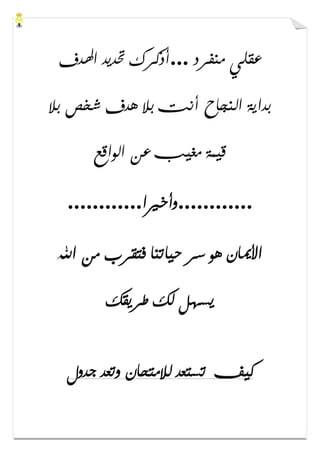 عقلي منفرد ...أذكرك تحديد الهدف
بداية النجاح أنت بلا هدف شخص بلا
قيمة مغيب عن الواقع
............وأخيرا............
الأيمان هو سر حياتنا فتقرب من الله
يسهل لك طريقك
كيف تستعد للامتحان وتعد جدول